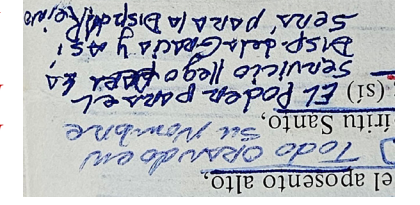 el aposento alto,
Todo orando en
su Nombre
íritu Santo,
(sí) EL Poder para el
servicio llego para la
Disp. de la Gracia y Así
Será para la Disp. del Reino